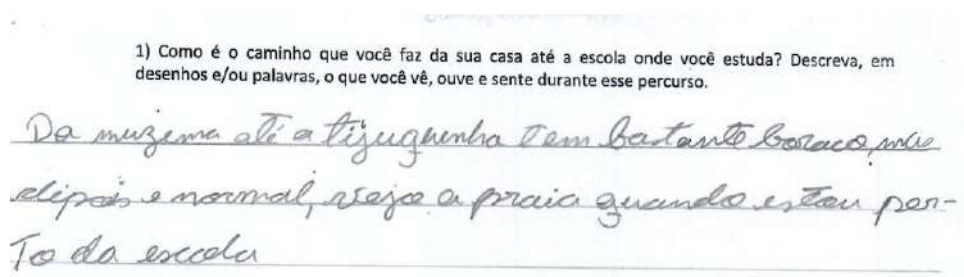 1) Como é o caminho que você faz da sua casa até a escola onde você estuda? Descreva, em
desenhos e/ou palavras, o que você vê, ouve e sente durante esse percurso.
Da muzema ali a tijuquinha Tem bastante boraco, mas
dipois e normal, vejo a praia quando estou per-
To da escola